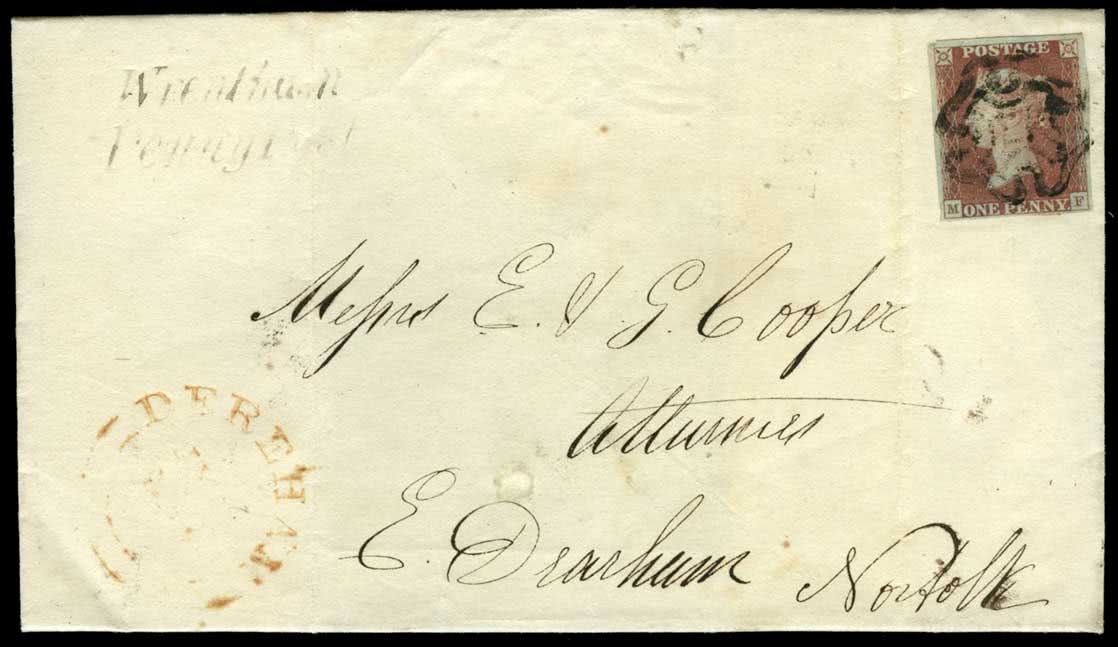 Wrentham
Penny Post
POSTAGE
M ONE PENNY. F
Messrs E. & G. Cooper
Atturnies
E. Dearham Norfolk
DEREHAM